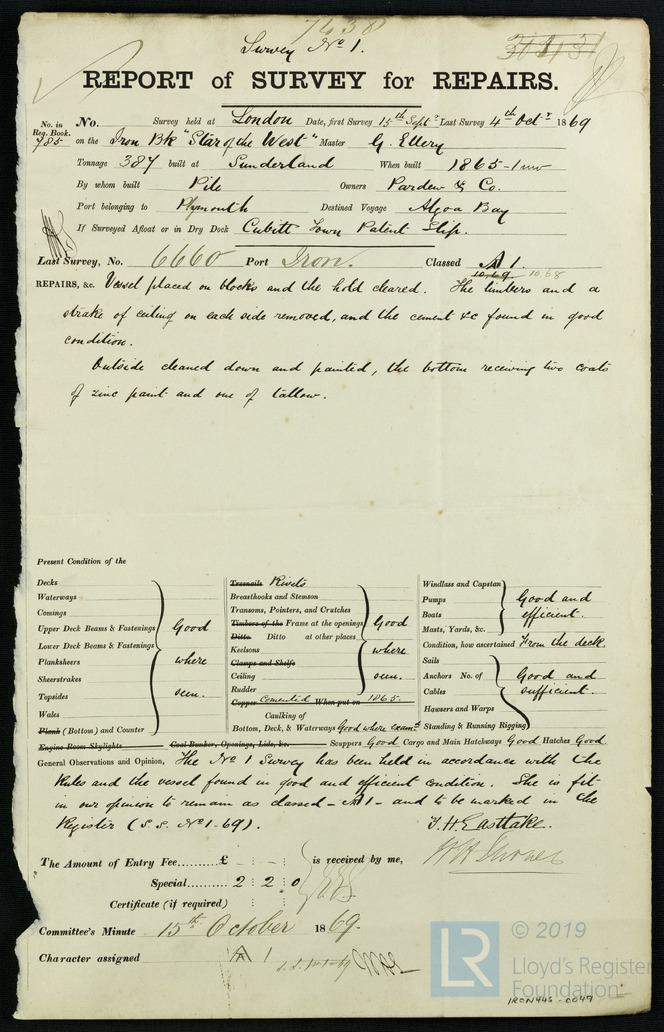 7438
Survey No 1.
REPORT of SURVEY for REPAIRS.
No. in Reg. Book. 785
No. Survey held at London Date, first Survey 15th Septr Last Survey 4th Octr 1869
on the Iron Bk "Star of the West" Master G. Ellery
Tonnage 387 built at Sunderland When built 1865-1
By whom built Pile Owners Pardew & Co.
Port belonging to Plymouth Destined Voyage Algoa Bay
If Surveyed Afloat or in Dry Dock Cubitt Town Patent Slip.
Last Survey, No. 6660 Port Iron. Classed A 1.
10.69 10.68
REPAIRS, &c. Vessel placed on blocks and the hold cleared. The limbers and a
strake of ceiling on each side removed, and the cement &c found in good
condition.
Outside cleaned down and painted, the bottom receiving two coats
of zinc paint and one of tallow.
Present Condition of the
Decks
Waterways
Comings
Upper Deck Beams & Fastenings
Lower Deck Beams & Fastenings
Planksheers
Sheerstrakes
Topsides
Wales
Plank (Bottom) and Counter
Good
where
seen.
Treenails Rivets
Breasthooks and Stemson
Transoms, Pointers, and Crutches
Timbers of the Frame at the openings
Ditto. Ditto at other places
Keelsons
Clamps and Shelfs
Ceiling
Rudder
Good
where
seen.
Copper cemented When put on 1865.
Caulking of
Bottom, Deck, & Waterways Good where examd
Windlass and Capstan
Pumps
Boats
Masts, Yards, &c.
Good and
efficient.
Condition, how ascertained From the deck.
Sails
Anchors No. of
Cables
Hawsers and Warps
Standing & Running Rigging
Good and
sufficient.
Engine Room Skylights Coal Bunker, Openings, Lids, &c. Scuppers Good Cargo and Main Hatchways Good Hatches Good.
General Observations and Opinion, The No 1 Survey has been held in accordance with the
Rules and the vessel found in good and efficient condition. She is fit
in our opinion to remain as classed - A1 - and to be marked in the
Register (S.S. No 1-69).
T. H. Eastlake.
The Amount of Entry Fee......£ : - : - is received by me,
Special...... 2 : 2 . 0
Certificate (if required)
Committee's Minute 15th October 1869.
Character assigned A 1
© 2019
LR
Lloyd's Register
Foundation
IRON446-0049